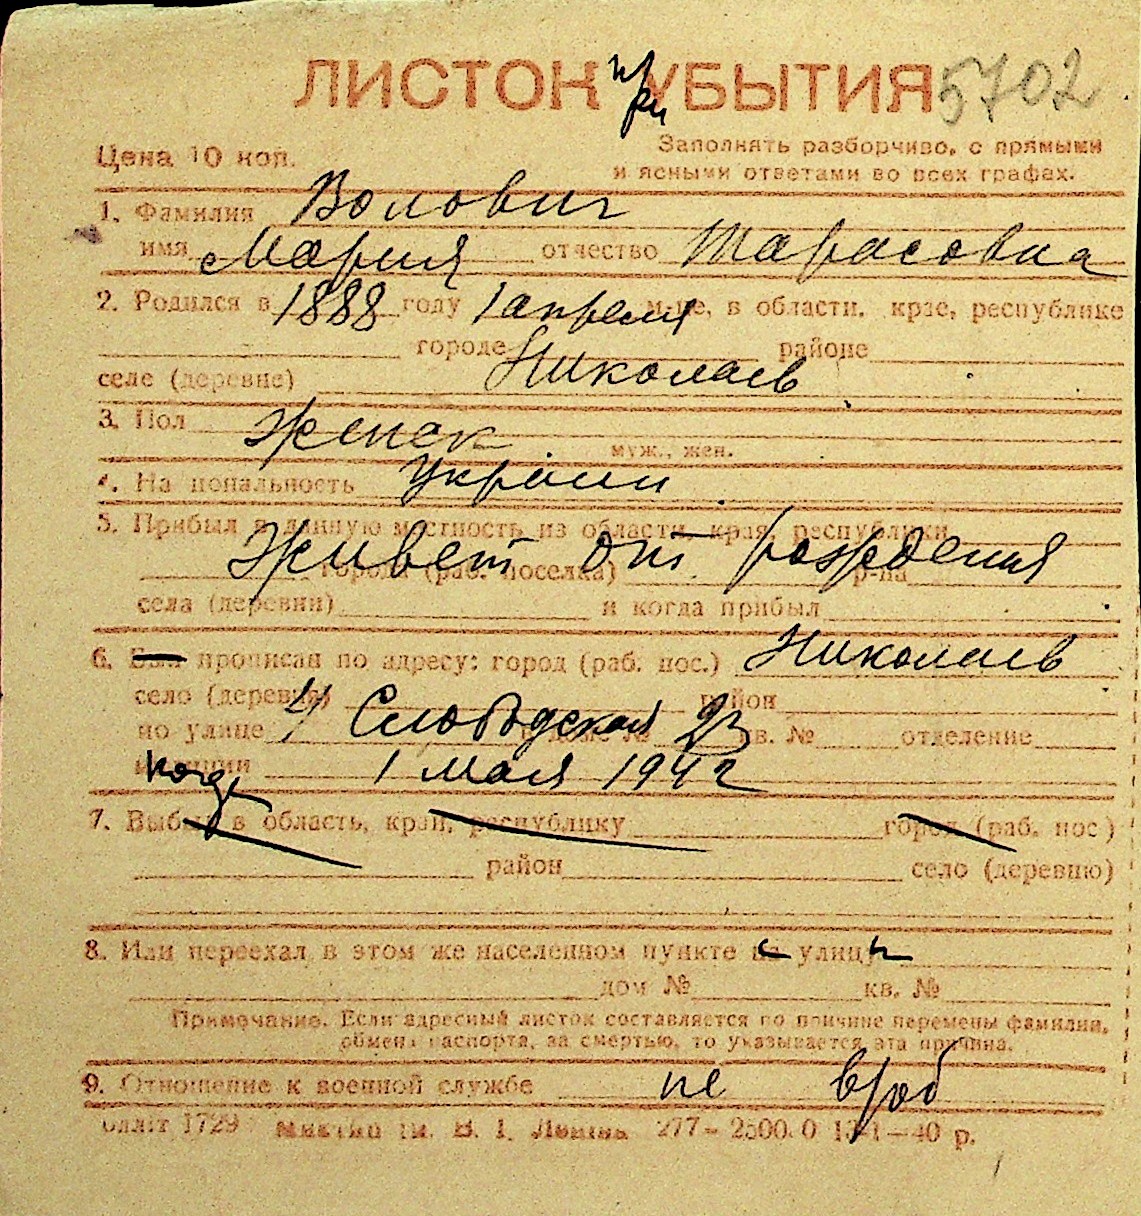 ЛИСТОК при УБЫТИЯ 5702
Цена 10 коп.
Заполнять разборчиво, с прямыми
и ясными ответами во всех графах.
1. Фамилия Волович
имя Мария отчество Тарасовна
2. Родился в 1888 году 1 апреля м-це, в области, крае, республике
городе Николаев районе
селе (деревне)
3. Пол женск муж., жен.
4. На цональность украин
5. Прибыл в данную местность из области, края, республики
Живет от рождения
города (раб. поселка) р-на
села (деревни) и когда прибыл
6. Был прописан по адресу: город (раб. пос.) Николаев
село (деревня) район
по улице 4 Слободская в доме № 23 кв. № отделение
милиции когда 1 мая 1942
7. Выбыл в область, край, республику город (раб. пос)
район село (деревню)
8. Или переехал в этом же населенном пункте с улицы
дом № кв. №
Примечание. Если адресный листок составляется по причине перемены фамилии,
обмена паспорта, за смертью, то указывается эта причина.
9. Отношение к военной службе не
1729 им. В. І. Леніна 277–2500.0 13-1–40 р.